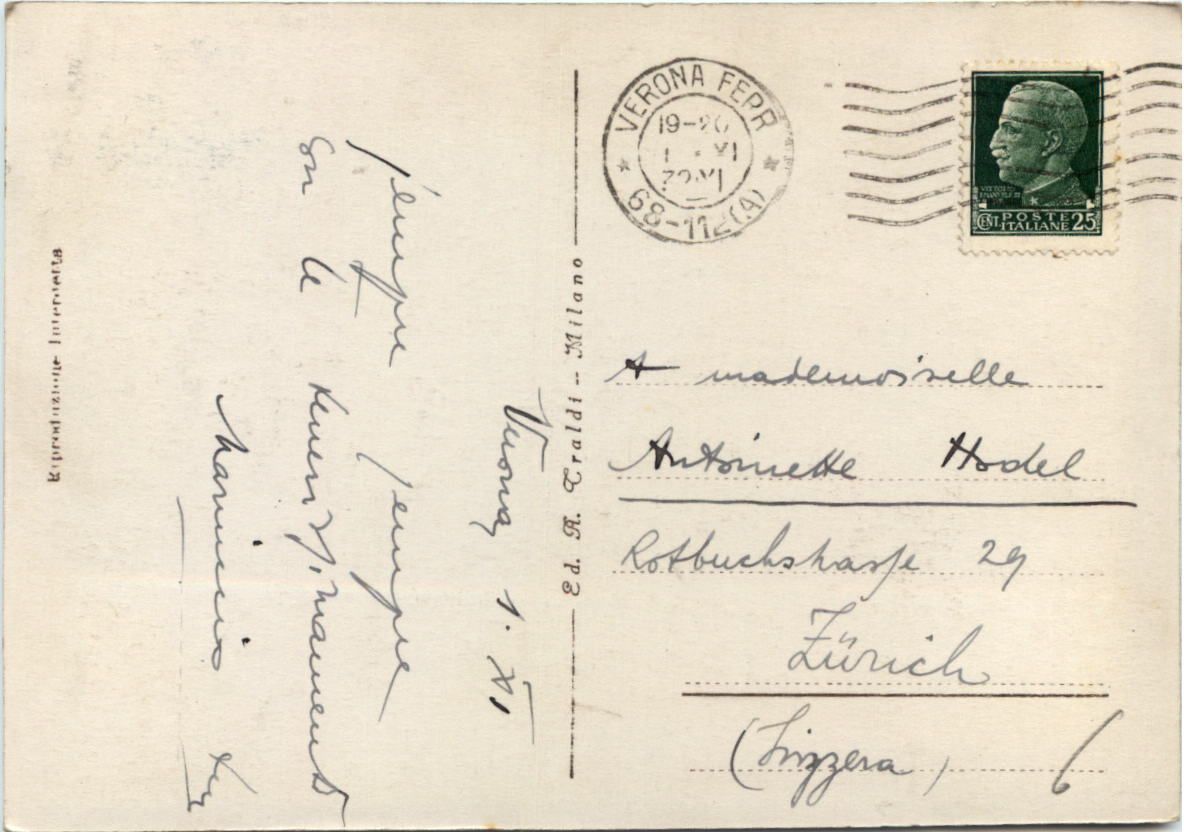 VERONA FERR
19-20
1 . XI
32·XI
68-112(A)
VITTORIO
EMANUELE III
CENT. POSTE ITALIANE 25
Verona, 1. XI
sempre sempre
con te
Maurizio
A mademoiselle
Antoinette Hodel
Rotbuchstrasse 29
Zürich
(Svizzera)
6
Ed. A. Traldi - Milano
Riproduzione Interdetta